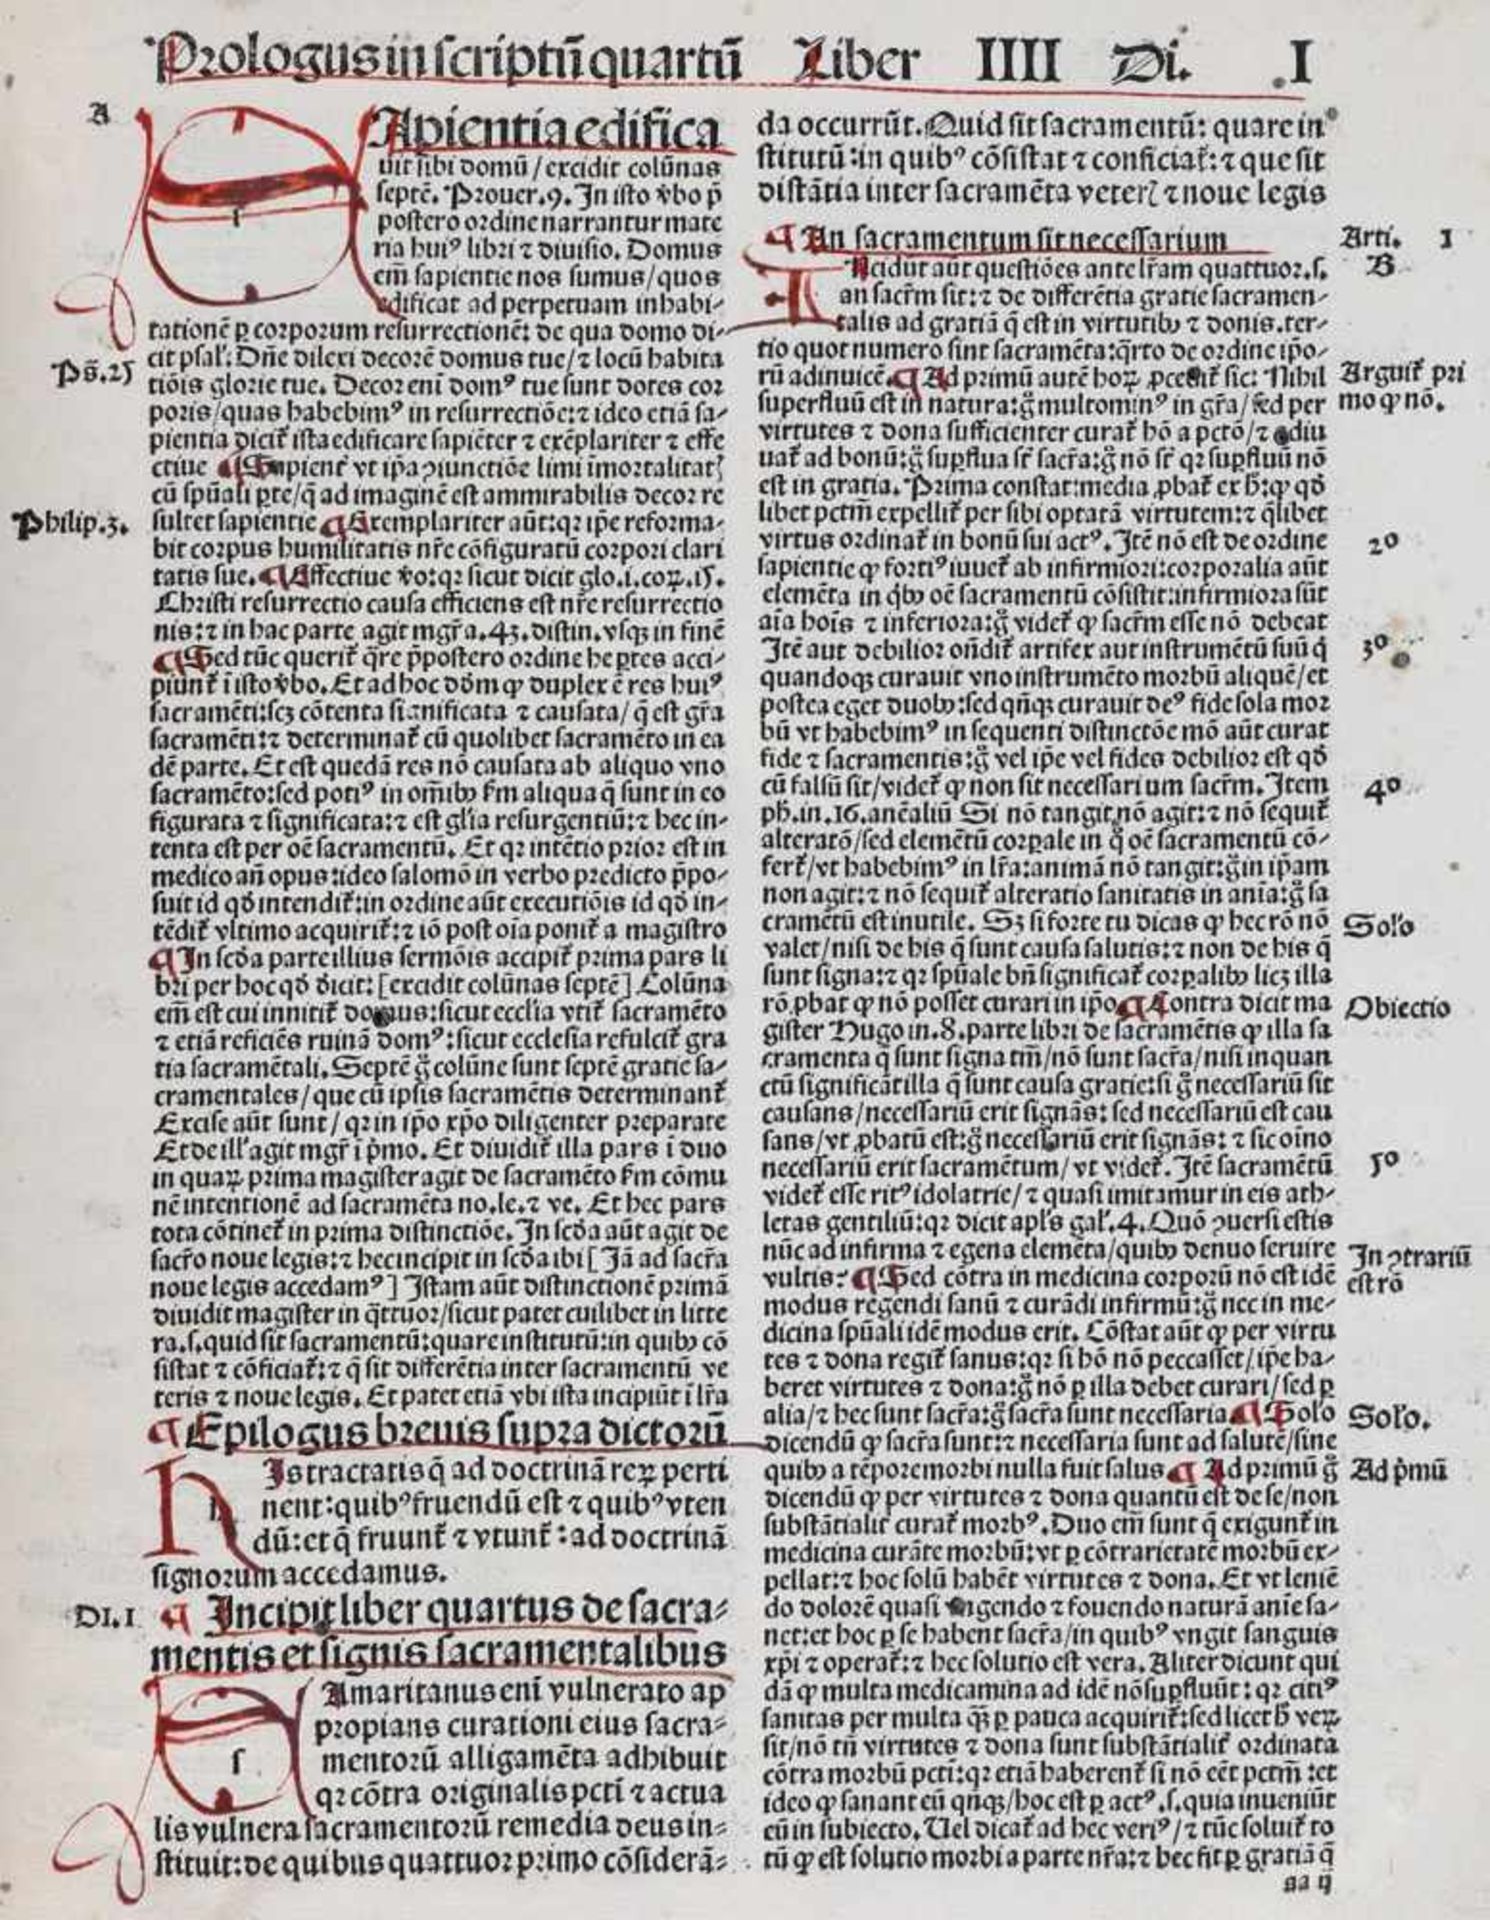 Prologus in scriptū quartū Liber IIII Di. I
A
SApientia edifica
uit sibi domū / excidit colūnas
septē. Prouer.9. In isto v̄bo p̄
postero ordine narrantur mate
ria huiꝰ libri ⁊ diuisio. Domus
em̄ sapientie nos sumus/quos
edificat ad perpetuam inhabi-
tationē ꝑ corporum resurrectionē: de qua domo di-
cit psal'. Dn̄e dilexi decorē domus tue/⁊ locū habita
Ps̄.25
tiōis glorie tue. Decor enī domꝰ tue sunt dotes cor
poris/quas habebimꝰ in resurrectiōe:⁊ ideo etiā sa-
pientia dicit᷑ ista edificare sapiēter ⁊ exēplariter ⁊ effe
ctiue ¶ Sapient᷑ vt ip̄a ↄiunctiōe limi īmortalitat
cū spūali ꝑte/q̄ ad imaginē est ammirabilis decor re
Philip.3.
sultet sapientie ¶ Exemplariter aūt:qꝛ ip̄e reforma-
bit corpus humilitatis nr̄e cōfiguratū corpori clari
tatis sue. ¶ Effectiue v̄o:qꝛ sicut dicit glo.i.coꝝ.15.
Christi resurrectio causa efficiens est nr̄e resurrectio
nis:⁊ in hac parte agit mgr̄ a.43.distin.vsqꝫ in finē
¶ Sed tūc querit᷑ q̄re p̄postero ordine he ꝑtes acci-
piunt᷑ ī isto v̄bo. Et ad hoc dd̄m ꝙ duplex ē res huiꝰ
sacramēti:scꝫ cōtenta significata ⁊ causata/q̄ est gr̄a
sacramēti:⁊ determinat᷑ cū quolibet sacramēto in ea
dē parte. Et est quedā res nō causata ab aliquo vno
sacramēto:sed potiꝰ in om̄ibꝫ fm aliqua q̄ sunt in eo
figurata ⁊ significata:⁊ est gl'ia resurgentiū:⁊ hec in-
tenta est per oē sacramentū. Et qꝛ intētio prior est in
medico an̄ opus:ideo salomō in verbo predicto p̄po-
suit id qd̄ intendit᷑:in ordine aūt executiōis id qd̄ in-
tēdit᷑ vltimo acquirit᷑:⁊ iō post oīa ponit᷑ a magistro
¶ In scd̄a parte illius sermōis accipit᷑ prima pars li
bri per hoc qd̄ dicit: [excidit colūnas septē] Colūna
em̄ est cui innitit᷑ domus:sicut eccl'ia vtit᷑ sacramēto
⁊ etiā reficiēs ruinā domꝰ:sicut ecclesia refulcit᷑ gra
tia sacramētali. Septē g̊ colūne sunt septē gratie sa-
cramentales/que cū ipsis sacramētis determinant᷑
Excise aūt sunt/qꝛ in ip̄o xp̄o diligenter preparate
Et de ill' agit mgr̄ ī p̄mo. Et diuidit᷑ illa pars ī duo
in quaꝝ prima magister agit de sacramēto fm cōmu
nē intentionē ad sacramēta no.le.⁊ ve. Et hec pars
tota cōtinet᷑ in prima distinctiōe. In scd̄a aūt agit de
sacr̄o noue legis:⁊ hec incipit in scd̄a ibi [Iā ad sacr̄a
noue legis accedamꝰ] Istam aūt distinctionē primā
diuidit magister in q̄ttuor/sicut patet cuilibet in litte
ra.s.quid sit sacramentū:quare institutū:in quibꝫ cō
sistat ⁊ cōficiat᷑:⁊ q̄ sit differētia inter sacramentū ve
teris ⁊ noue legis. Et patet etiā vbi ista incipiūt ī lr̄a
¶ Epilogus breuis supra dictorū
HIs tractatis q̄ ad doctrinā reꝝ perti
nent:quibꝰ fruendū est ⁊ quibꝰ vten
dū:et q̄ fruunt᷑ ⁊ vtunt᷑ : ad doctrinā
signorum accedamus.
DI.1
¶ Incipit liber quartus de sacra-
mentis et signis sacramentalibus
SAmaritanus enī vulnerato ap
propians curationi eius sacra-
mentorū alligamēta adhibuit
qꝛ cōtra originalis pctī ⁊ actua
lis vulnera sacramentorū remedia deus in-
stituit:de quibus quattuor primo cōsiderā-
da occurrūt. Quid sit sacramentū: quare in
stitutū:in quibꝰ cōsistat ⁊ conficiat᷑:⁊ que sit
distātia inter sacramēta veterꝭ ⁊ noue legis
¶ An sacramentum sit necessarium
Arti. 1
B
INcidūt aūt questiōes ante lr̄am quattuor.s.
an sacr̄m sit:⁊ de differētia gratie sacramen-
talis ad gratiā q̄ est in virtutibꝫ ⁊ donis.ter-
tio quot numero sint sacramēta:q̄rto de ordine ip̄o-
rū adinuicē. ¶ Ad primū autē hoꝝ ꝓcedit᷑ sic: Nihil
Arguit᷑ pri
mo ꝙ nō.
superfluū est in natura:g̊ multominꝰ in gr̄a/sed per
virtutes ⁊ dona sufficienter curat᷑ hō a pctō/⁊ adiu
uat᷑ ad bonū:g̊ suꝑflua sr̄ sacr̄a:g̊ nō sr̄ qꝛ suꝑfluū nō
est in gratia. Prima constat:media ꝓbat᷑ ex h̄:ꝙ qd̄
libet pctm̄ expellit᷑ per sibi optatā virtutem:⁊ q̄libet
virtus ordinat᷑ in bonū sui actꝰ. Itē nō est de ordine
2o
sapientie ꝙ fortiꝰ iuuet᷑ ab infirmiori:corporalia aūt
elemēta in q̇bꝫ oē sacramentū cōsistit:infirmiora sūt
aīa hoīs ⁊ inferiora:g̊ videt᷑ ꝙ sacr̄m esse nō debeat
3o
Itē aut debilior on̄dit᷑ artifex aut instrumētū suū q̄
quandoqꝫ curauit vno instrumēto morbū aliquē/et
postea eget duobꝫ:sed qn̄qꝫ curauit deꝰ fide sola mor
bū vt habebimꝰ in sequenti distinctōe mō aūt curat
fide ⁊ sacramentis:g̊ vel ip̄e vel fides debilior est qd̄
cū falsū sit/videt᷑ ꝙ non sit necessarium sacr̄m. Item
4o
ph̄.in.16.anēaliū Si nō tangit nō agit:⁊ nō sequit᷑
alteratō/sed elemētū corꝑale in q̊ oē sacramentū cō-
fert᷑/vt habebimꝰ in lr̄a:animā nō tangit:g̊ in ip̄am
non agit:⁊ nō sequit᷑ alteratio sanitatis in anīa:g̊ sa
cramētū est inutile. Sꝫ si forte tu dicas ꝙ hec rō nō
Sol'o
valet/nisi de his q̄ sunt causa salutis:⁊ non de his q̄
sunt signa:⁊ qꝛ spūale bn̄ significat᷑ corꝑalibꝫ licꝫ illa
rō ꝓbat ꝙ nō posset curari in ip̄o ¶ Contra dicit ma
Obiectio
gister Hugo in.8.parte libri de sacramētis ꝙ illa sa
cramenta q̄ sunt signa tm̄/nō sunt sacr̄a/nisi inquan
ctū significāt illa q̄ sunt causa gratie:si g̊ necessariū sit
causans/necessariū erit signās: sed necessariū est cau
sans/vt ꝓbatū est:g̊ necessariū erit signās: ⁊ sic oīno
necessariū erit sacramētum/vt videt᷑. Itē sacramētū
5o
videt᷑ esse ritꝰ idolatrie/⁊ quasi imitamur in eis ath-
letas gentiliū:qꝛ dicit apl's gal'.4. Quō ↄuersi estis
nūc ad infirma ⁊ egena elemēta/quibꝫ denuo seruire
In ↄtrariū
est rō
vultis: ¶ Sed cōtra in medicina corporū nō est idē
modus regendi sanū ⁊ curādi infirmū:g̊ nec in me-
dicina spūali idē modus erit. Cōstat aūt ꝙ per virtu
tes ⁊ dona regit᷑ sanus:qꝛ si hō nō peccasset/ip̄e ha-
beret virtutes ⁊ dona:g̊ nō ꝑ illa debet curari/sed ꝑ
alia/⁊ hec sunt sacr̄a:g̊ sacr̄a sunt necessaria ¶ Sol'o
Sol'o.
dicendū ꝙ sacr̄a sunt:⁊ necessaria sunt ad salutē/sine
quibꝫ a tēpore morbi nulla fuit salus ¶ Ad primū g̊
Ad p̄mū
dicendū ꝙ per virtutes ⁊ dona quantū est de se/non
substātialit᷑ curat᷑ morbꝰ. Duo em̄ sunt q̄ exigunt᷑ in
medicina curāte morbū:vt ꝑ cōtrarietatē morbū ex-
pellat:⁊ hoc solū habēt virtutes ⁊ dona. Et vt leniē
do dolorē quasi vngendo ⁊ fouendo naturā anīe sa-
net:et hoc ꝑ se habent sacr̄a/in quibꝰ vngit sanguis
xp̄i ⁊ operat᷑:⁊ hec solutio est vera. Aliter dicunt qui
dā ꝙ multa medicamina ad idē nō suꝑfluūt: qꝛ citiꝰ
sanitas per multa q̄ꝫ ꝑ pauca acquirit᷑:sed licet h̄ veꝝ
sit/nō tn̄ virtutes ⁊ dona sunt substātialit᷑ ordinata
cōtra morbū pctī:qꝛ etiā haberent᷑ si nō eēt pctm̄ :et
ideo ꝙ sanant eū qn̄qꝫ/hoc est ꝑ actꝰ.s.quia inueniūt
eū in subiecto. Uel dicat᷑ ad hec veriꝰ/⁊ tūc soluit᷑ to
tū ꝙ est solutio morbi a parte nr̄a:⁊ hec fit ꝑ gratiā q̄
aa ij